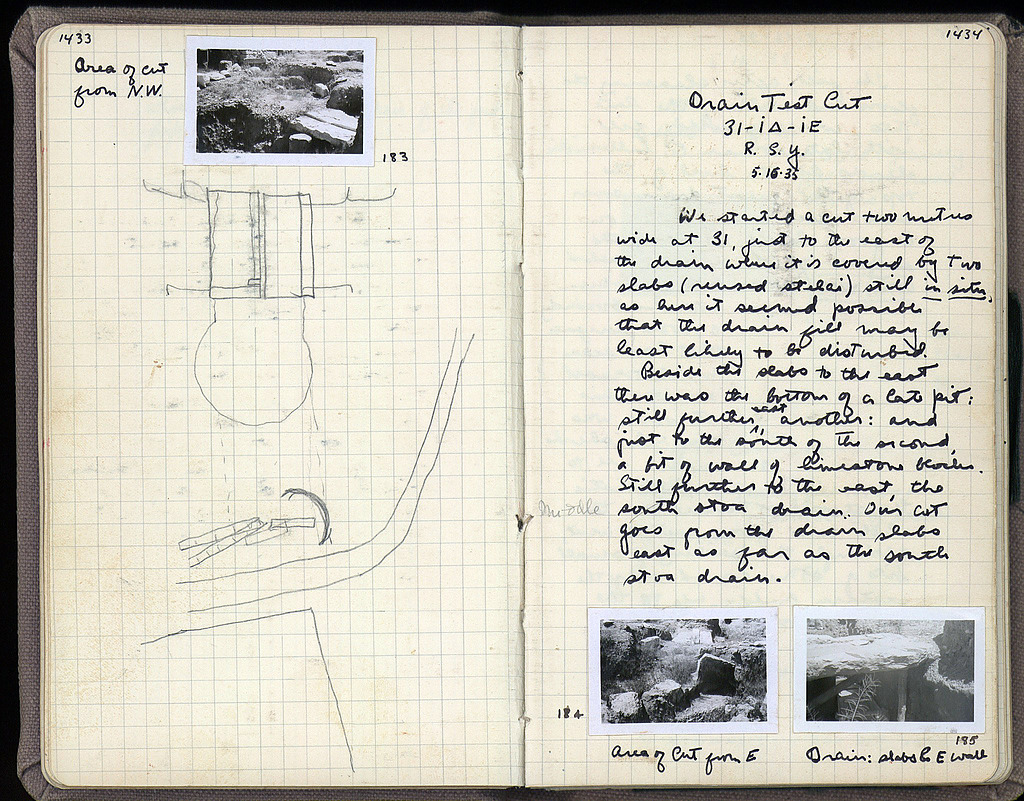 1433
Area of cut
from N.W.
183
1434
Drain Test Cut
31-ΙΔ-ΙΕ
R. S. Y.
5.16.35
We started a cut two metres
wide at 31, just to the east of
the drain where it is covered by two
slabs (reused stelai) still in situ,
as here it seemed possible
that the drain fill may be
least likely to be disturbed.
Beside the slabs to the east
there was the bottom of a late pit:
still further east another: and
just to the south of the second,
a bit of wall of limestone blocks.
Still further to the east, the
south stoa drain. Our cut
goes from the drain slabs
east as far as the south
stoa drain.
Middle
184
Area of Cut from E
185
Drain: slabs & E wall